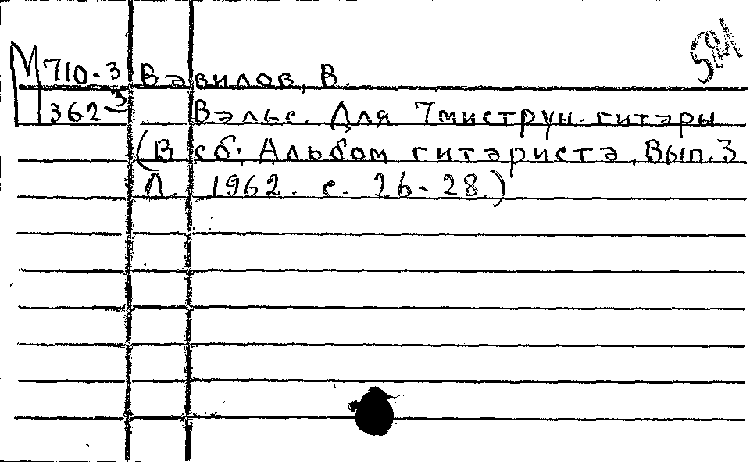 581
М 710-3 Вавилов, В.
362-3 Вальс. Для 7миструн. гитары
(В сб: Альбом гитариста, Вып. 3
Л. 1962. с. 26-28.)